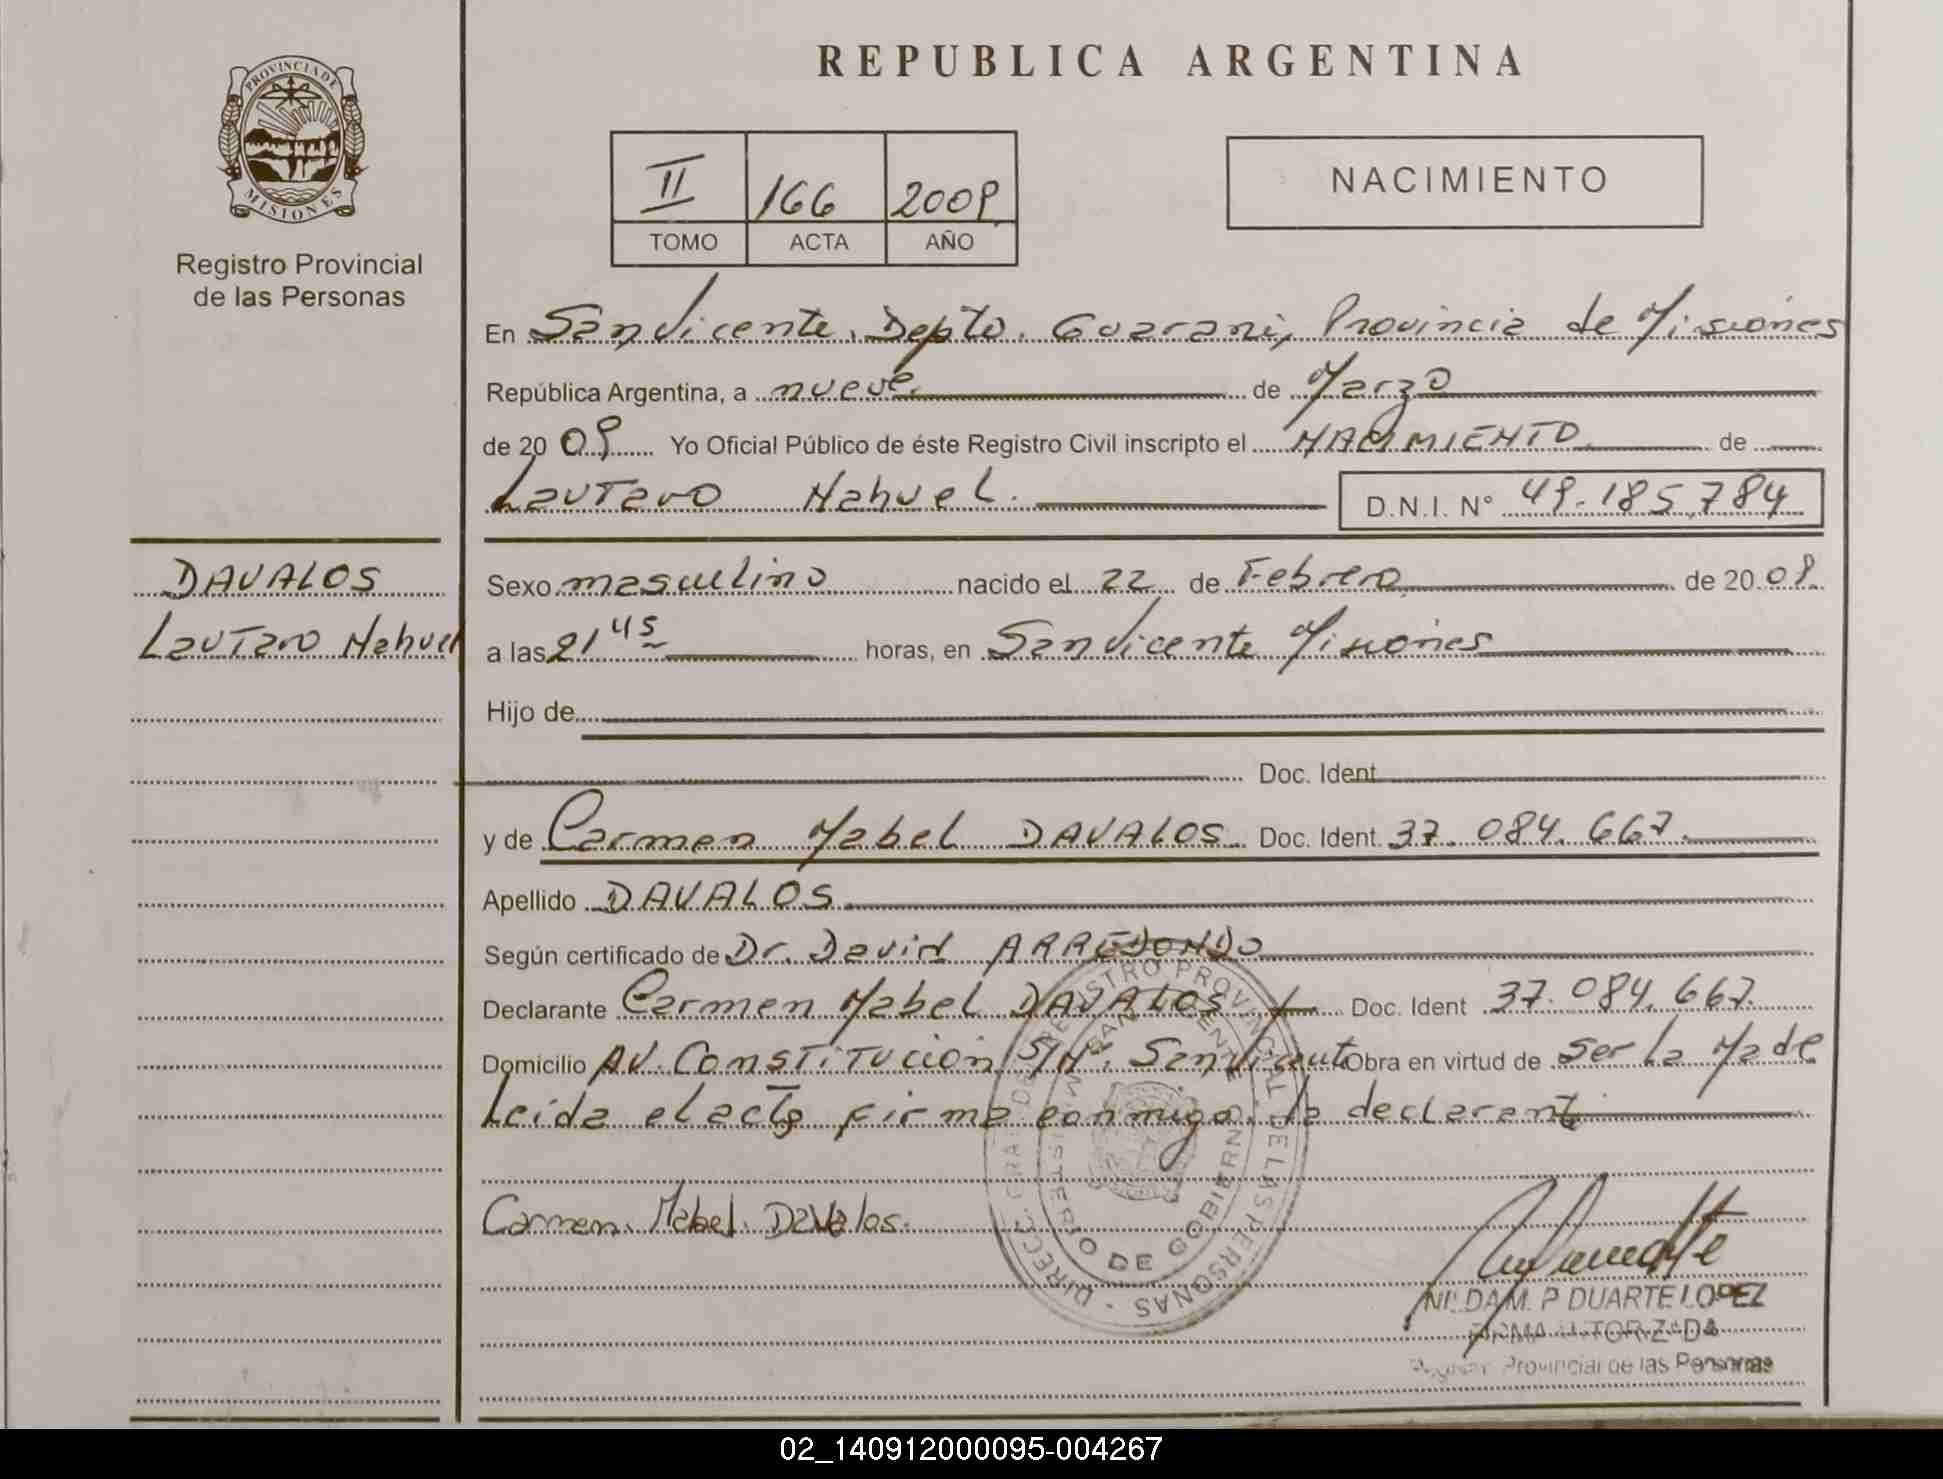 PROVINCIA DE
MISIONES
Registro Provincial
de las Personas
REPUBLICA ARGENTINA
II 166 2009
TOMO ACTA AÑO
NACIMIENTO
En San Vicente, Depto. Guarani, Provincia de Misiones
República Argentina, a nueve de Marzo
de 20 09 Yo Oficial Público de éste Registro Civil inscripto el NACIMIENTO de
Lautaro Nahuel. D.N.I. N° 49.185.784
DAVALOS
Lautaro Nahuel
Sexo masculino nacido el 22 de Febrero de 20 09
a las 21 45 horas, en San Vicente Misiones
Hijo de
Doc. Ident
y de Carmen Mabel DAVALOS Doc. Ident. 37.084.667.
Apellido DAVALOS
Según certificado de Dr. David ARREDONDO
Declarante Carmen Mabel DAVALOS Doc. Ident 37.084.667.
Domicilio AV. Constitución S/Nº. San Vicente Obra en virtud de ser la Made
Leida el acta firma conmigo la declarant
Carmen Mabel Davalos.
DIRECC. GRAL. DE REGISTRO PROVINCIAL DE LAS PERSONAS
MINISTERIO DE GOBIERNO
SAN VICENTE
NILDA M. P DUARTE LOPEZ
FIRMA AUTORIZADA
Registro Provincial de las Personas
02_140912000095-004267